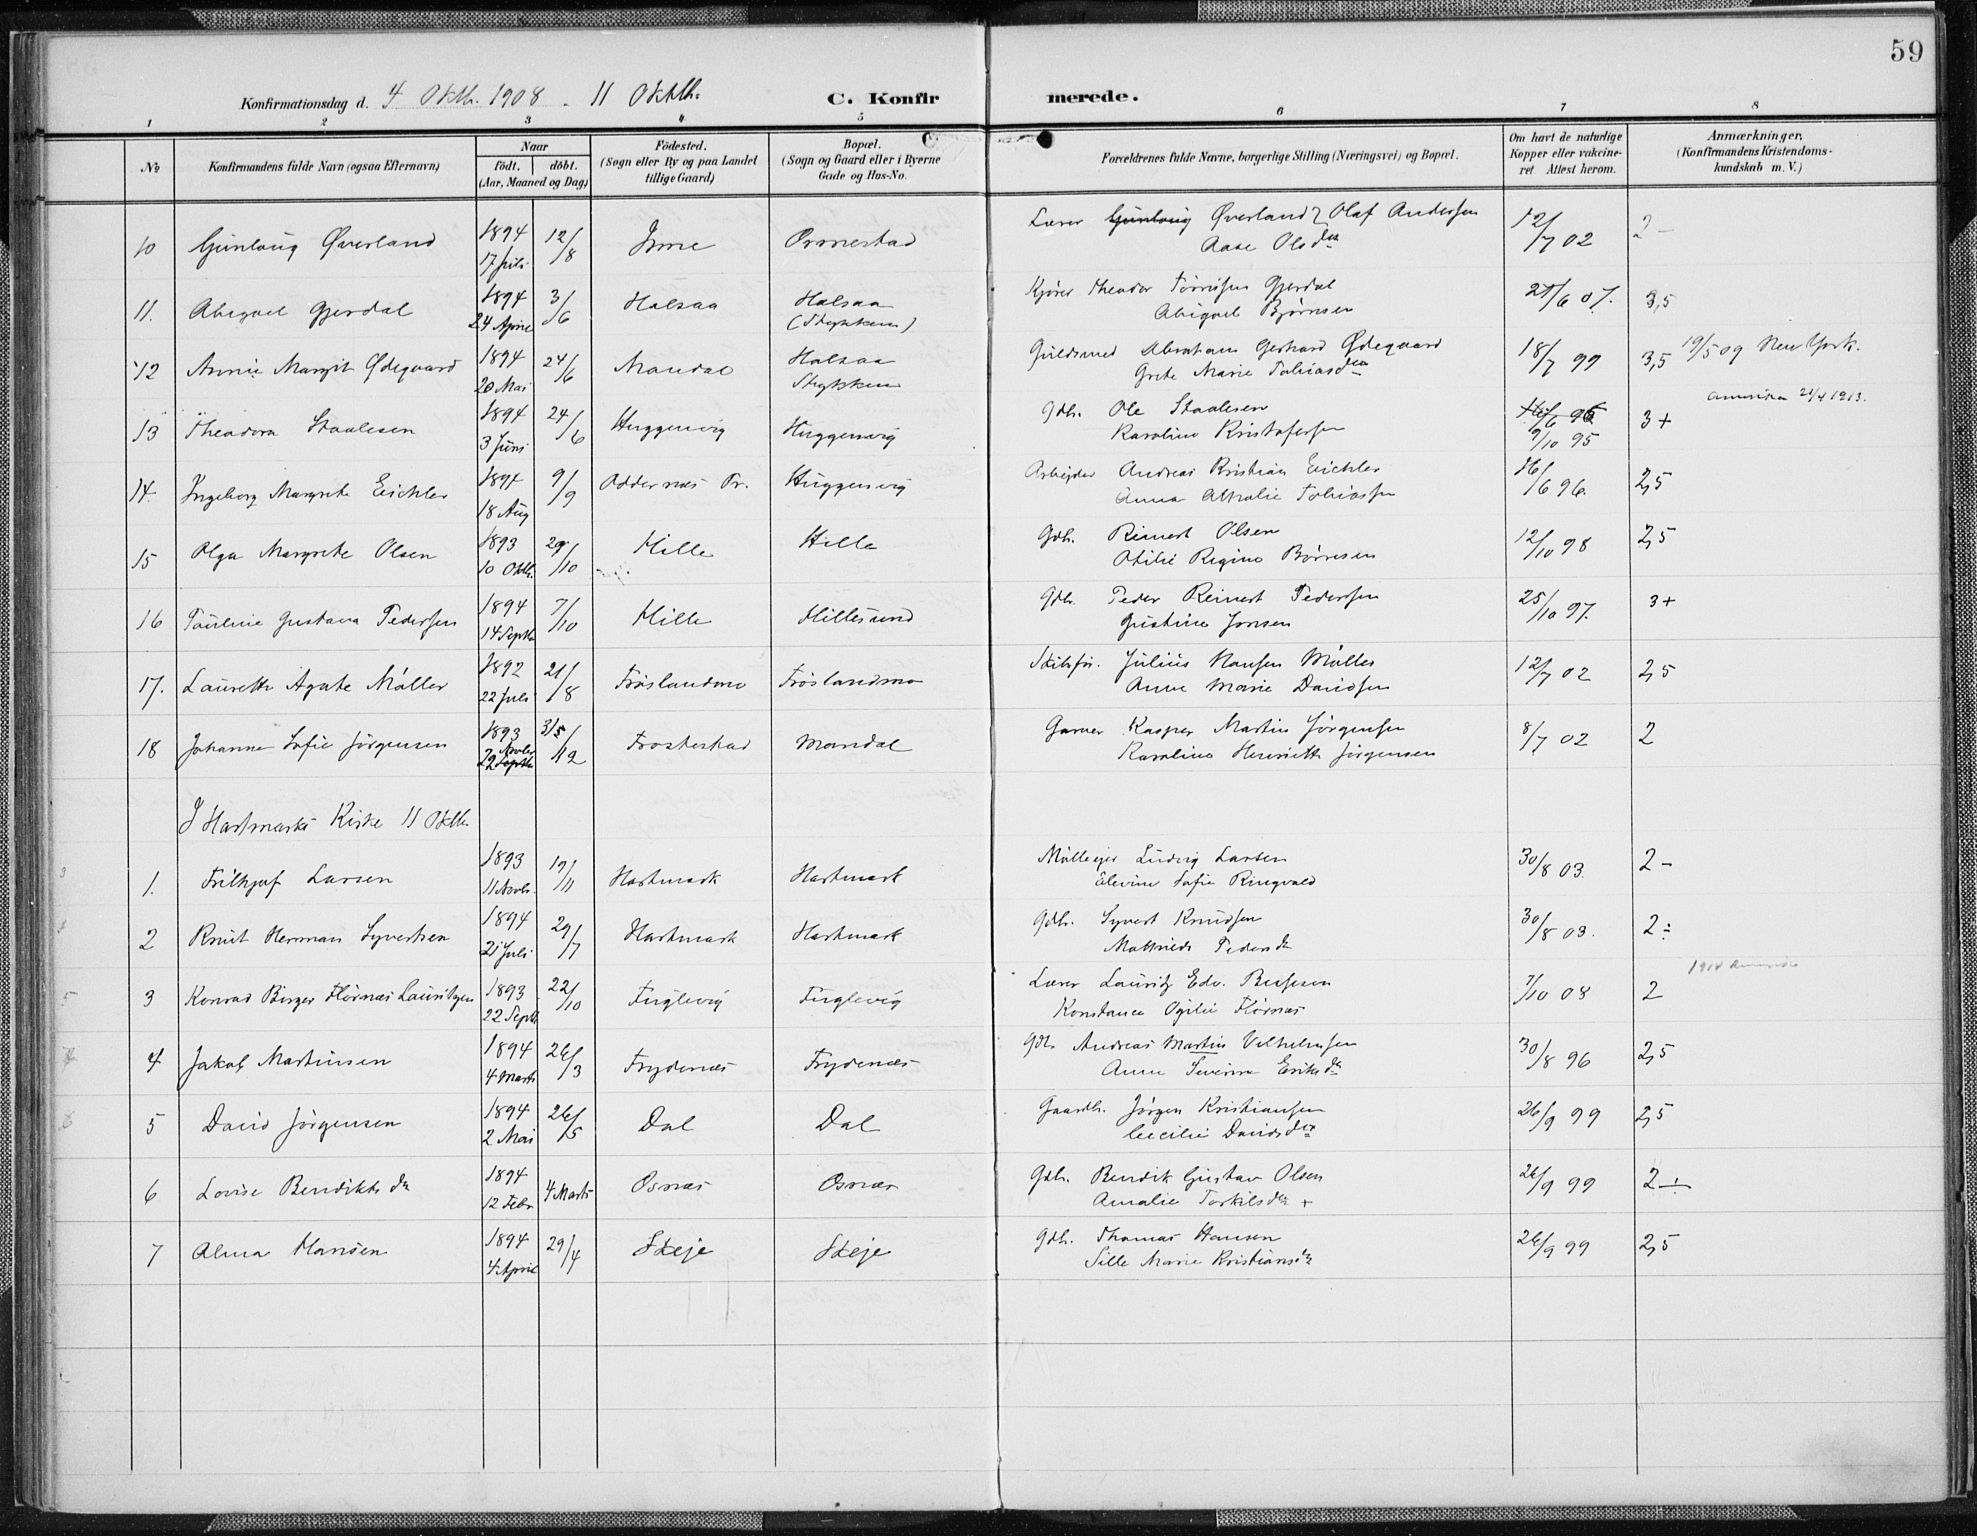 59
Konfirmationsdag d. 4 Oktb. 1908 - 11 Oktbr. C. Konfirmerede.
1 2 3 4 5 6 7 8
No
Konfirmandens fulde Navn (ogsaa Efternavn)
Naar
födt. döbt.
(Aar, Maaned og Dag)
Födested.
(Sogn eller By og paa Landet
tillige Gaard)
Bopæl.
(Sogn og Gaard eller i Byerne
Gade og Hus-No.
Forældrenes fulde Navne, borgerlige Stilling (Næringsvei) og Bopæl.
Om havt de naturlige
Kopper eller vakcine-
ret. Attest herom.
Anmærkninger.
(Konfirmandens Kristendoms-
kundskab m. V.)
10 Gunlaug Øverland 1894 17 Juli 12/8 Ime Ormestad Lærer Gunlaug Øverland, Olaf Andersen 12/7 02 2-
Aase Olsdtr
11. Abigael Gjerdal 1894 24 April 3/6 Halsaa Halsaa Kjører Theodor Tørrisen Gjerdal 27/6 07. 3,5
Abigael Bjørnsen
12 Annie Margit Ødegaard 1894 20 Mai 24/6 Mandal Halsaa Guldsmed Abraham Gerhard Ødegaard 18/7 99 3,5 19/5 09 New York.
Grete Marie Tobiasdtr
13 Theodora Staalesen 1894 3 Juni 24/6 Huggenvig Huggenvig Gdb. Ole Staalesen 9/10 95 3+ Amerika 21/4 1913.
Karoline Kristofersen
14. Ingeborg Margrete Eichler 1894 18 Aug 9/9 Oddernæs Pr. Huggenvig Arbejder Andreas Kristian Eichler 16/6 96. 2,5
Anna Athalie Tobiassen
15 Olga Margrete Olsen 1893 10 Oktb. 29/10 Hille Hille Gdb. Reinert Olsen 12/10 98 2,5
Otilie Regine Børresen
16 Pauline Gustava Pedersen 1894 14 Septb 7/10 Hille Hillesund Gdb. Peder Reinert Pedersen 25/10 97. 3+
Gustine Jonsen
17. Laurette Agate Møller 1892 22 Juli 21/8 Frøslandmo Frøslandmo Skibsfør. Julius Hansen Møller 12/7 02 2,5
Anne Marie Davidsen
18 Johanne Sofie Jørgensen 1893 22 Novbr Septb 3/12 Frostestad Mandal Garver Kasper Martin Jørgensen 8/7 02 2
Karoline Henriette Jørgensen
I Hartmarks Kirke 11 Oktbr.
1. Frithjof Larsen 1893 11 Novb. 19/11 Hartmark Hartmark Mølleejer Ludvig Larsen 30/8 03. 2-
Elevine Sofie Ringvold
2 Knut Herman Syvertsen 1894 21 Juli 29/7 Hartmark Hartmark Gdb. Syvert Knudsen 30/8 03. 2÷
Mathilde Pedersdtr
3 Konrad Birger Flørnæs Lauritzen 1893 22 Septb 22/10 Fuglevig Fuglevig Lærer Lauritz Edv. 7/10 08 2
Konstance Ogilie Flørnæs
4 Jakob Martinsen 1894 4 Marts 26/3 Frydenæs Frydenæs Gdb. Andreas Martin Vilhelmsen 30/8 96 2,5
Anne Severine Eriksdtr
5 David Jørgensen 1894 2 Mai 26/5 Dal Dal Gaardb. Jørgen Kristiansen 26/9 99 2,5
Cecilie Davidsdtr
6 Lovise Bendiktsdtr 1894 12 Febr 4 Marts Osnæs Osnæs Gdb. Bendik Gustav Olsen 26/9 99 2÷
Amalie Torkilsdtr +
7 Alma Hansen 1894 4 April 29/4 Skeje Skeje Gdb. Thomas Hansen 26/9 99 2,5
Sille Marie Kristiansdtr